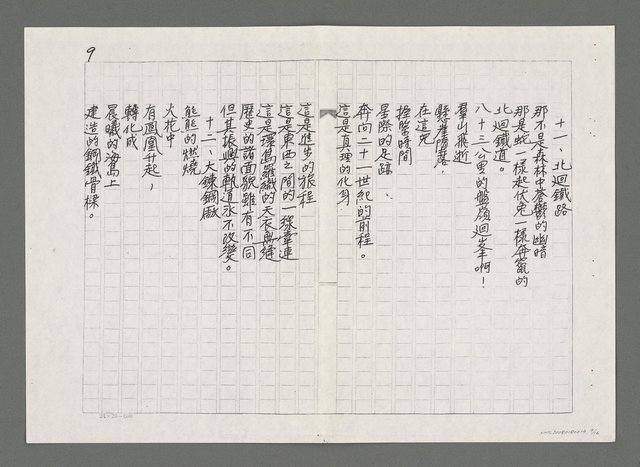 9
十一、北迴鐵路
那不是森林中蒼鬱的幽暗
那是蛇一樣起伏兔一樣奔竄的
北迴鐵道。
八十三公里的盤嶺迴峯啊！
羣山飛逝
懸崖隋落，
在這兒
握緊時間
星際的足跡
奔向二十一世紀的前程。
這是真理的化身
這是進步的旅程
這是東西之間的一線牽連
這是環島羅織的天衣無縫
歷史的面貌雖有不同
但其振興的軌道永不改變。
十二、大鍊鋼廠
熊熊的燃燒
火花中
有鳳凰升起，
轉化成
晨曦的海島上
建造的鋼鐵骨樑。